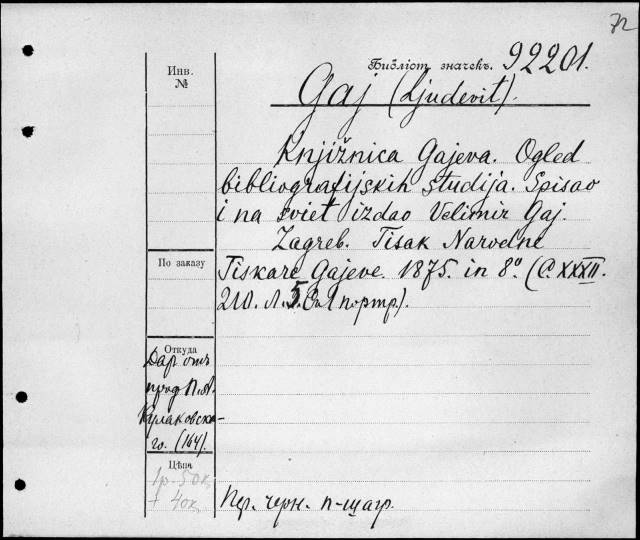 72
Библіот. значекъ. 92201.
Инв.
№
Gaj (Ljudevit).
Knjižnica Gajeva. Ogled
bibliografijskih studija. Spisao
i na sviet izdao Velimir Gaj.
Zagreb. Tisak Narodne
Tiskare Gajeve. 1875. in 8° (С. XXXII.
210. Л. 5. Съ 1 портр.).
По заказу
Откуда
Даръ отъ
проф. П. А.
Кулаковска-
го. (164).
Цѣна
1р. 50к.
+ 40к.
Пер. черн. п-шагр.